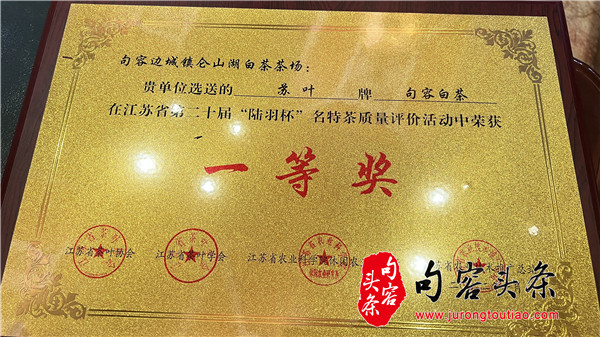 句容边城镇仑山湖白茶茶场：
贵单位选送的 苏叶 牌 句容白茶
在江苏省第二十届“陆羽杯”名特茶质量评价活动中荣获
一等奖
江苏省茶叶协会 江苏省茶叶学会 江苏省农业科学 休闲农 江苏省农
句容头条
句容头条
www.jurongtoutiao.com